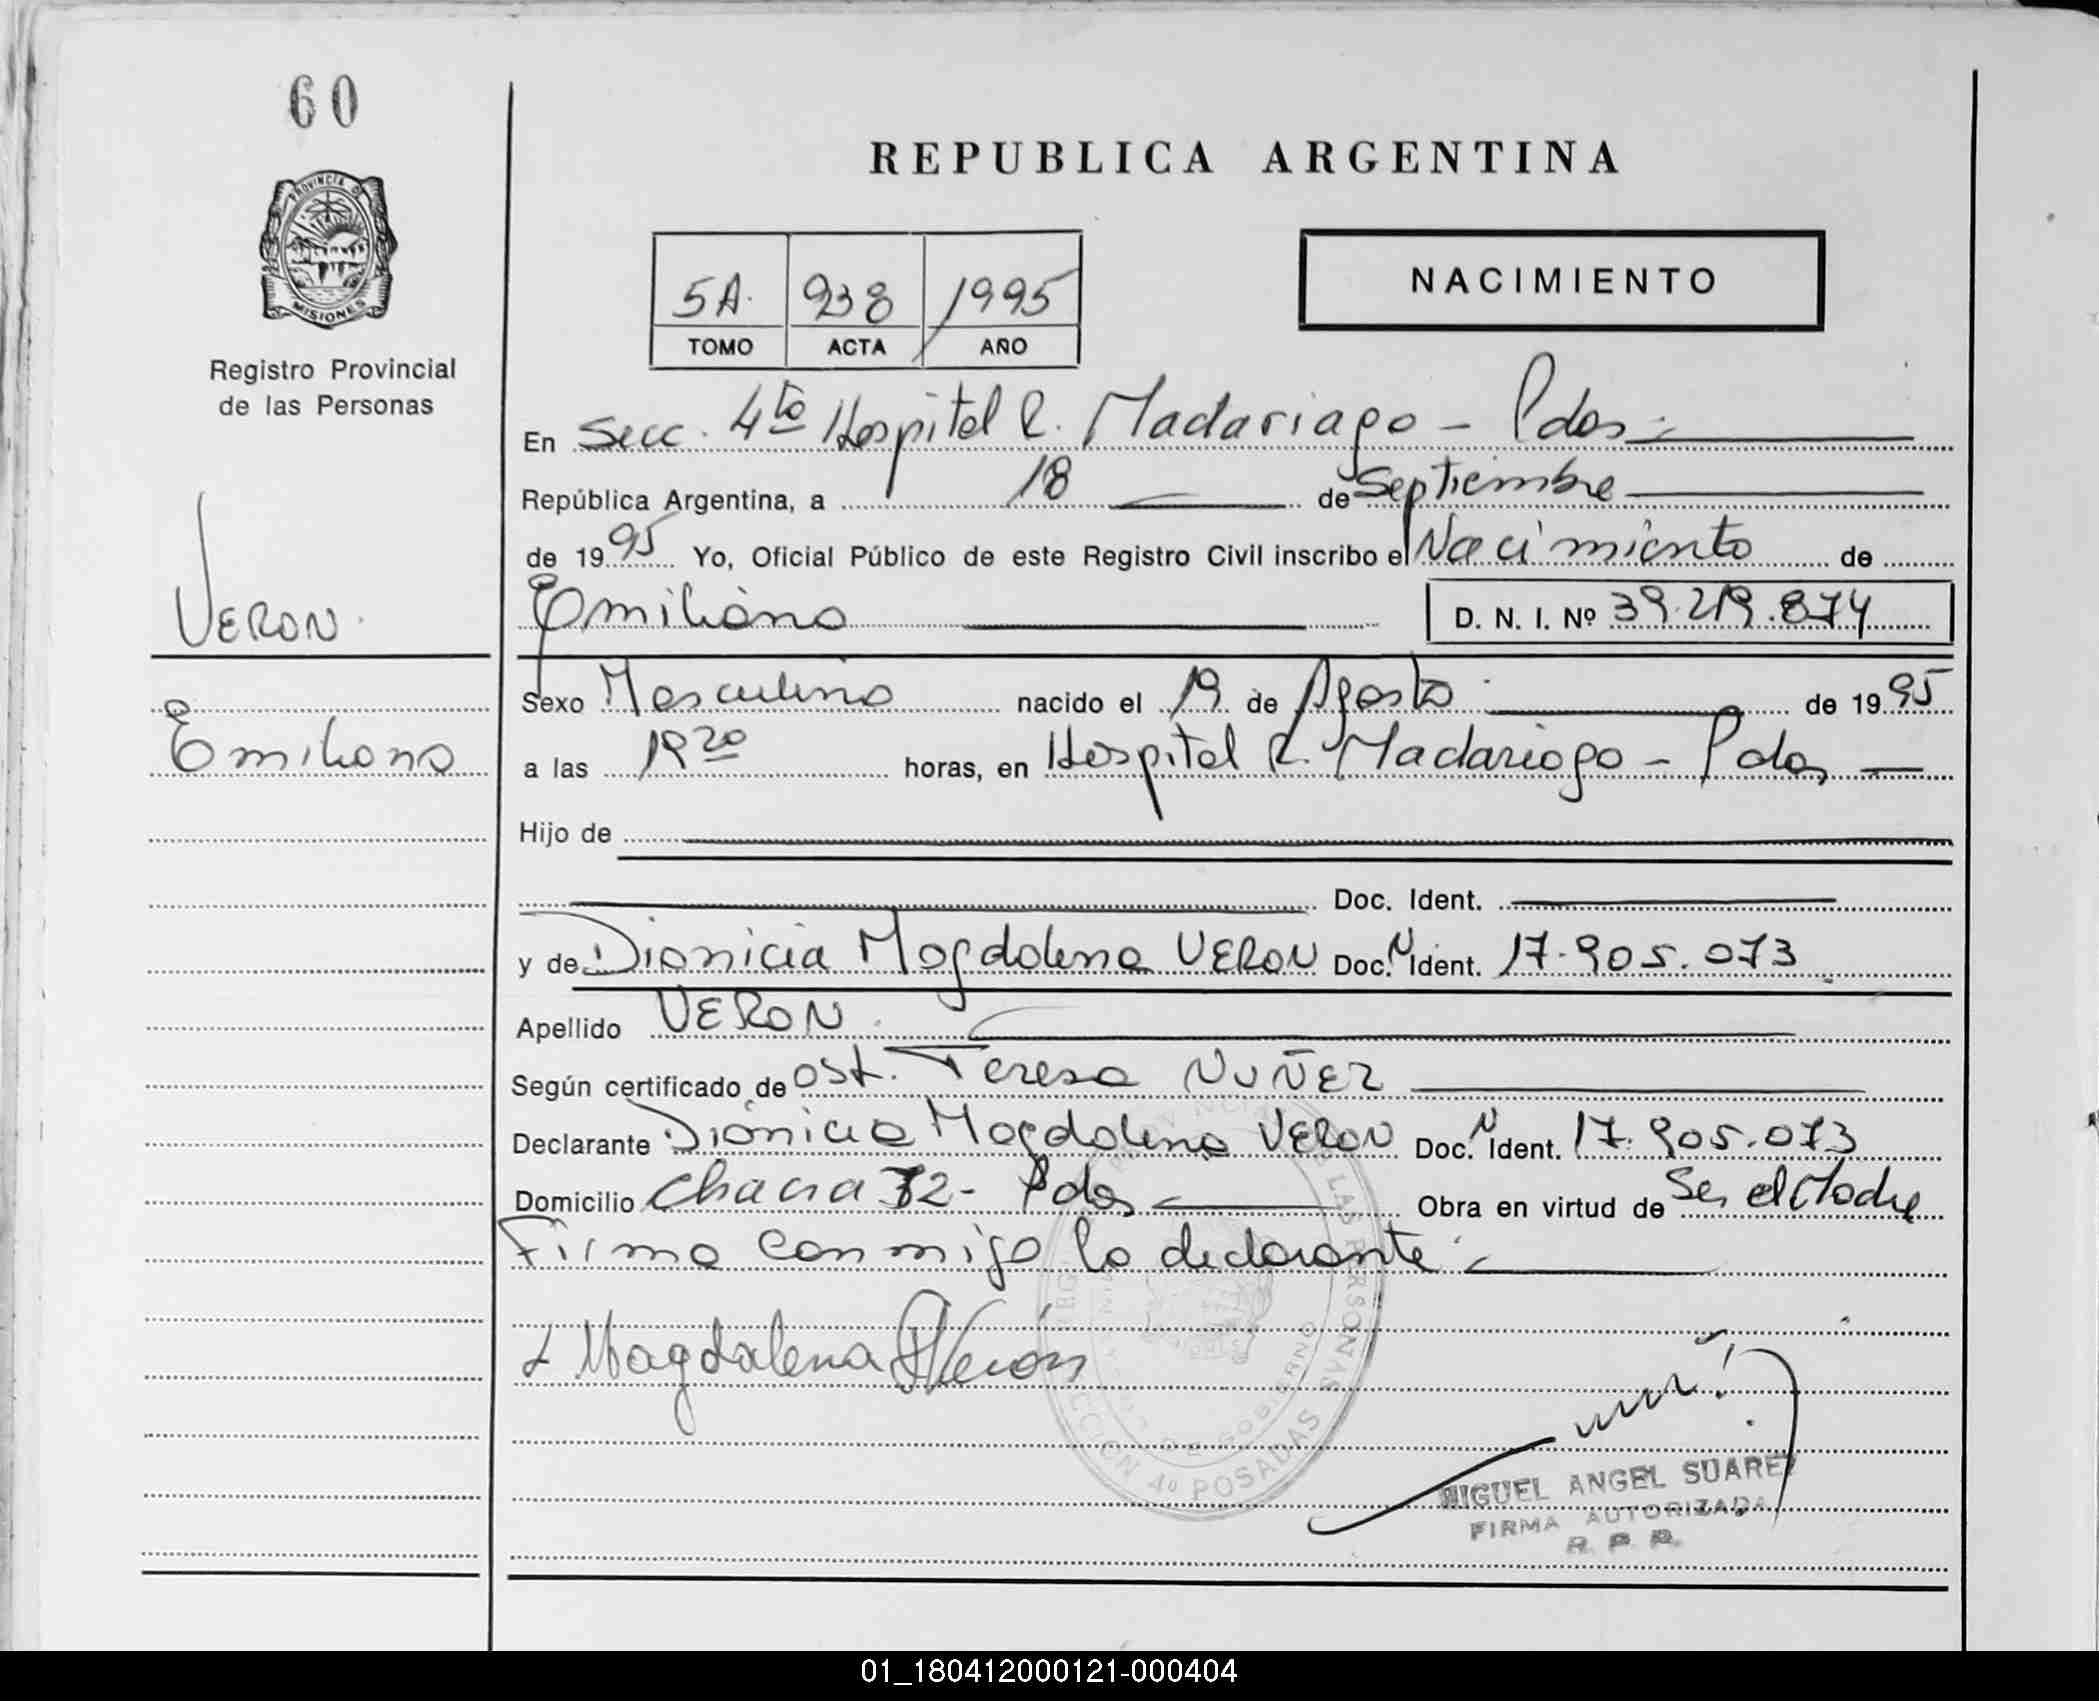 60
REPUBLICA ARGENTINA
PROVINCIA D
MISIONES
Registro Provincial
de las Personas
5A. 938 1995
TOMO ACTA AÑO
NACIMIENTO
En Secc. 4to Hospital R. Madariaga - Pdas.
República Argentina, a 18 de Septiembre
de 1995 Yo, Oficial Público de este Registro Civil inscribo el Nacimiento de
VERON.
Emiliano D. N. I. Nº 39.219.874
Sexo Masculino nacido el 19 de Agosto de 1995
Emiliano
a las 19 20 horas, en Hospital R. Madariaga - Pdas
Hijo de
Doc. Ident.
y de Dionicia Magdalena VERON Doc. N Ident. 17.905.073
Apellido VERON.
Según certificado de Ost. Teresa NUÑEZ
Declarante Dionicia Magdalena VERON Doc. N Ident. 17.905.073
Domicilio Chacra 32- Pdas Obra en virtud de Ser el Madre
Firma conmigo la declarante
Magdalena Verón
LAS PERSONAS
DE GOBIERNO
CCION 4º POSADAS
MIGUEL ANGEL SUAREZ
FIRMA AUTORIZADA
R. P. P.
01_180412000121-000404